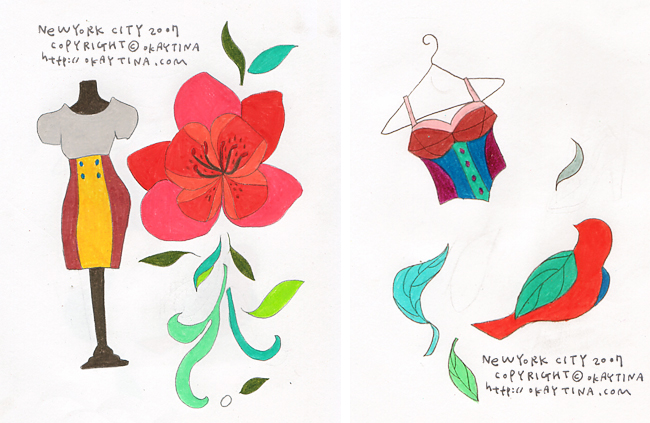 NEWYORK CITY 2007
COPYRIGHT© OKAYTINA
http://OKAYTINA.COM
NEWYORK CITY 2007
COPYRIGHT© OKAYTINA
http://OKAYTINA.COM